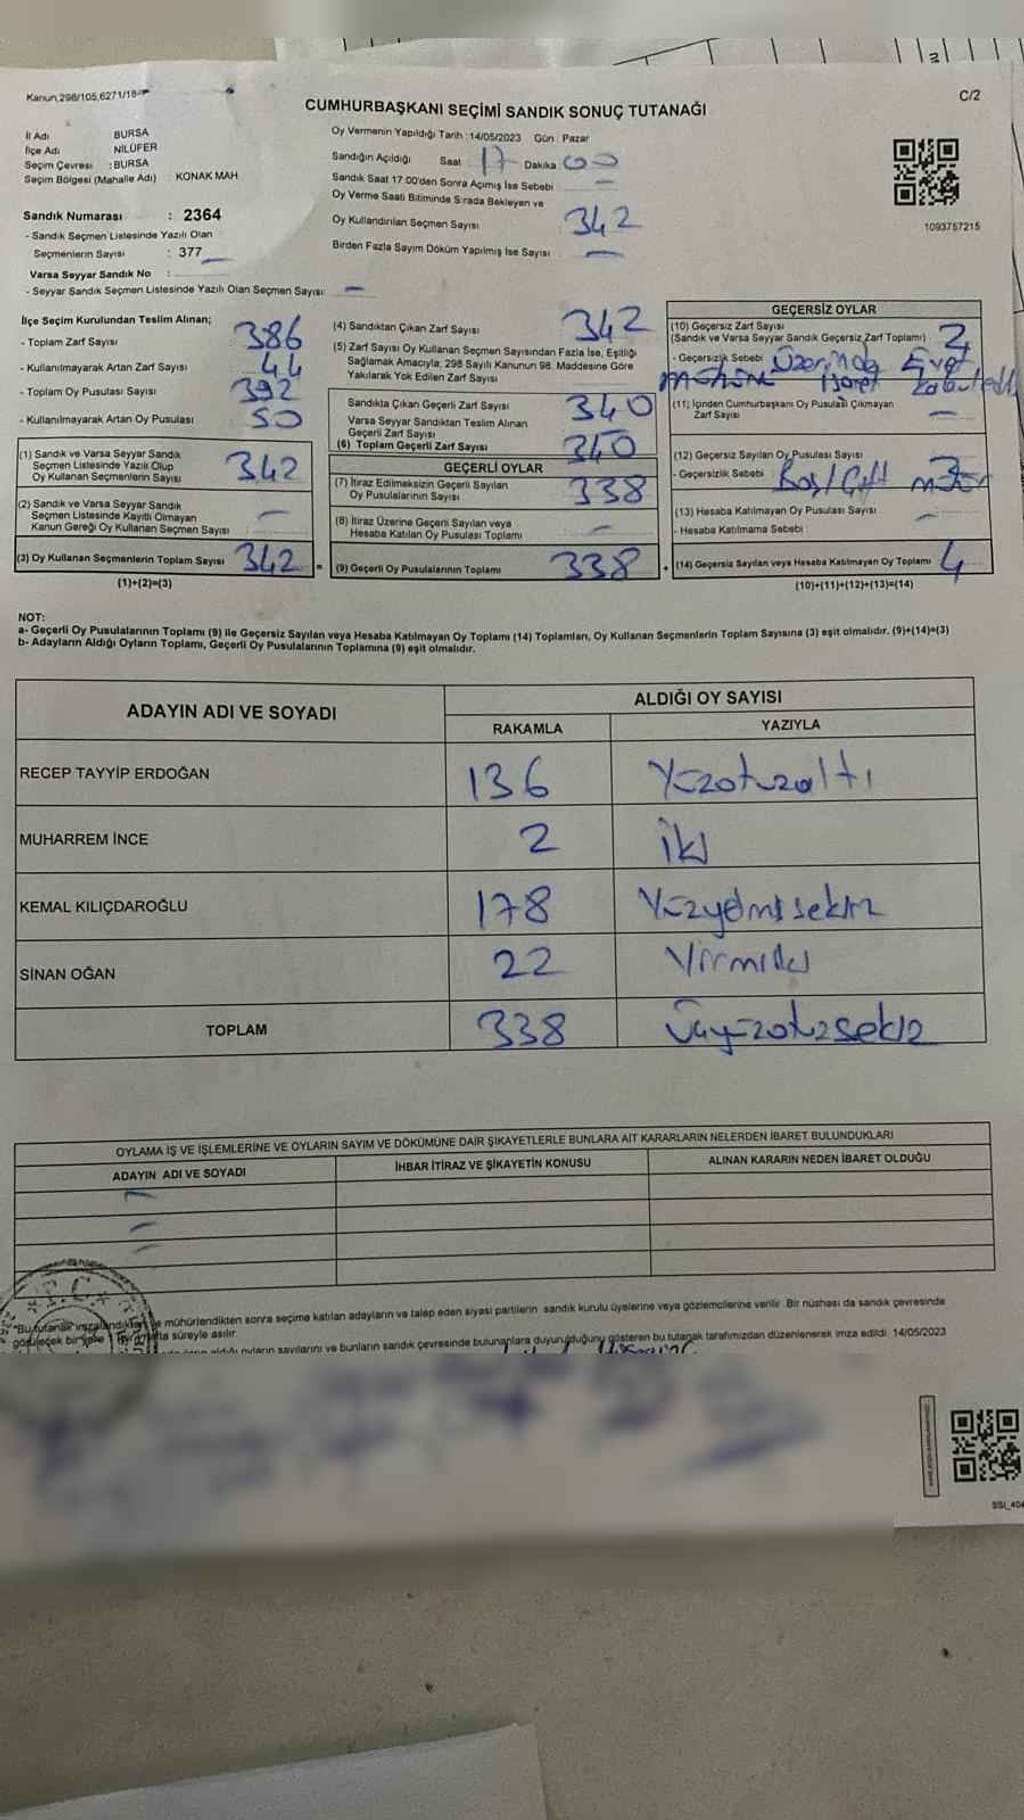 Kanun,298/105,6271/18
C/2
CUMHURBAŞKANI SEÇİMİ SANDIK SONUÇ TUTANAĞI
İl Adı BURSA
İlçe Adı NİLÜFER
Seçim Çevresi : BURSA
Seçim Bölgesi (Mahalle Adı) KONAK MAH
Sandık Numarası : 2364
- Sandık Seçmen Listesinde Yazılı Olan
Seçmenlerin Sayısı : 377
Varsa Seyyar Sandık No :
- Seyyar Sandık Seçmen Listesinde Yazılı Olan Seçmen Sayısı: —
Oy Vermenin Yapıldığı Tarih : 14/05/2023 Gün : Pazar
Sandığın Açıldığı Saat 17 Dakika 00
Sandık Saat 17:00'den Sonra Açılmış İse Sebebi —
Oy Verme Saati Bitiminde Sırada Bekleyen ve
Oy Kullandırılan Seçmen Sayısı 342
Birden Fazla Sayım Döküm Yapılmış İse Sayısı —
1093757215
İlçe Seçim Kurulundan Teslim Alınan;
- Toplam Zarf Sayısı 386
- Kullanılmayarak Artan Zarf Sayısı 44
- Toplam Oy Pusulası Sayısı 392
- Kullanılmayarak Artan Oy Pusulası 50
(1) Sandık ve Varsa Seyyar Sandık
Seçmen Listesinde Yazılı Olup
Oy Kullanan Seçmenlerin Sayısı 342
(2) Sandık ve Varsa Seyyar Sandık
Seçmen Listesinde Kayıtlı Olmayan
Kanun Gereği Oy Kullanan Seçmen Sayısı —
(3) Oy Kullanan Seçmenlerin Toplam Sayısı 342 =
(1)+(2)=(3)
(4) Sandıktan Çıkan Zarf Sayısı 342
(5) Zarf Sayısı Oy Kullanan Seçmen Sayısından Fazla İse, Eşitliği
Sağlamak Amacıyla, 298 Sayılı Kanunun 98. Maddesine Göre
Yakılarak Yok Edilen Zarf Sayısı
Sandıkta Çıkan Geçerli Zarf Sayısı 340
Varsa Seyyar Sandıktan Teslim Alınan
Geçerli Zarf Sayısı
(6) Toplam Geçerli Zarf Sayısı 340
GEÇERLİ OYLAR
(7) İtiraz Edilmeksizin Geçerli Sayılan
Oy Pusulalarının Sayısı 338
(8) İtiraz Üzerine Geçerli Sayılan veya
Hesaba Katılan Oy Pusulası Toplamı —
(9) Geçerli Oy Pusulalarının Toplamı 338 +
GEÇERSİZ OYLAR
(10) Geçersiz Zarf Sayısı
(Sandık ve Varsa Seyyar Sandık Geçersiz Zarf Toplamı) 2
- Geçersizlik Sebebi Üzerinde Evet
mührü işaret
(11) İçinden Cumhurbaşkanı Oy Pusulası Çıkmayan
Zarf Sayısı —
(12) Geçersiz Sayılan Oy Pusulası Sayısı
- Geçersizlik Sebebi Boş/Çift
(13) Hesaba Katılmayan Oy Pusulası Sayısı —
- Hesaba Katılmama Sebebi :
(14) Geçersiz Sayılan veya Hesaba Katılmayan Oy Toplamı 4
(10)+(11)+(12)+(13)=(14)
NOT:
a- Geçerli Oy Pusulalarının Toplamı (9) ile Geçersiz Sayılan veya Hesaba Katılmayan Oy Toplamı (14) Toplamları, Oy Kullanan Seçmenlerin Toplam Sayısına (3) eşit olmalıdır. (9)+(14)=(3)
b- Adayların Aldığı Oyların Toplamı, Geçerli Oy Pusulalarının Toplamına (9) eşit olmalıdır.
ADAYIN ADI VE SOYADI ALDIĞI OY SAYISI
RAKAMLA YAZIYLA
RECEP TAYYİP ERDOĞAN 136 Yüzotuzaltı
MUHARREM İNCE 2 İki
KEMAL KILIÇDAROĞLU 178 Yüzyetmişsekiz
SİNAN OĞAN 22 Yirmiiki
TOPLAM 338 Üçyüzotuzsekiz
OYLAMA İŞ VE İŞLEMLERİNE VE OYLARIN SAYIM VE DÖKÜMÜNE DAİR ŞİKAYETLERLE BUNLARA AİT KARARLARIN NELERDEN İBARET BULUNDUKLARI
ADAYIN ADI VE SOYADI İHBAR İTİRAZ VE ŞİKAYETİN KONUSU ALINAN KARARIN NEDEN İBARET OLDUĞU
—
—
—
T.C.
"Bu tutanak imzalandıktan ve mühürlendikten sonra seçime katılan adayların ve talep eden siyasi partilerin sandık kurulu üyelerine veya gözlemcilerine verilir. Bir nüshası da sandık çevresinde
görülecek bir yere 1 hafta süreyle asılır.
aldığı oyların sayılarını ve bunların sandık çevresinde bulunanlara duyurulduğunu gösteren bu tutanak tarafımızdan düzenlenerek imza edildi. 14/05/2023